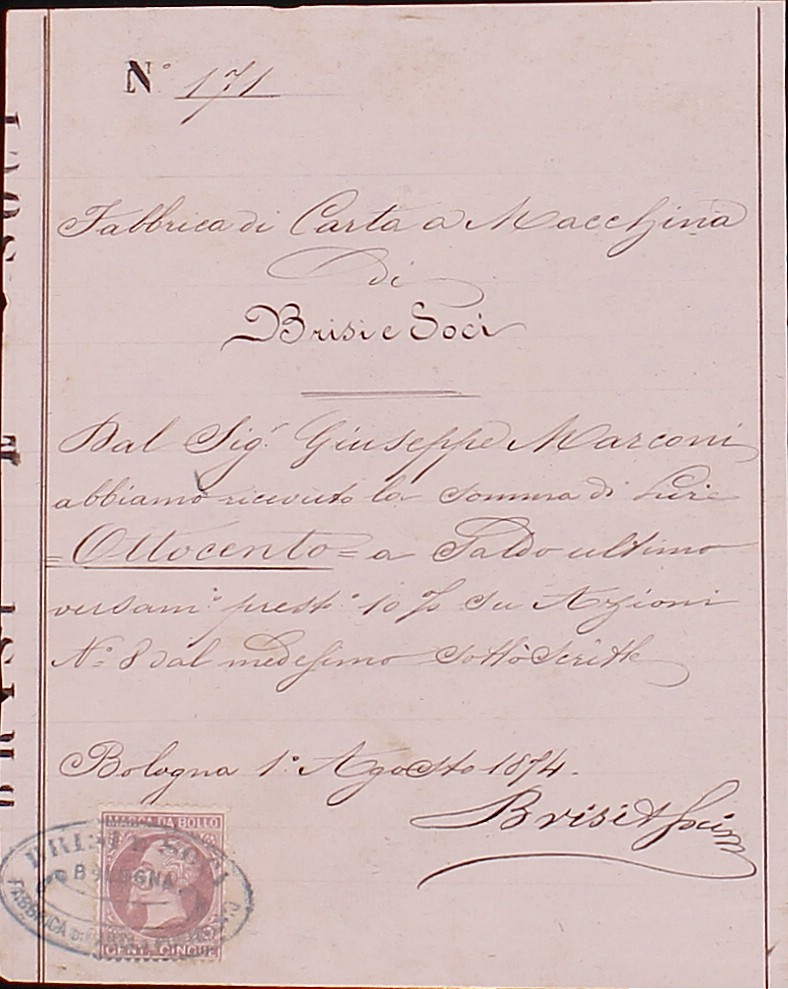 N° 171
Fabbrica di Carta a Macchina
di
Brisi e Soci
Dal Sig.r Giuseppe Marconi
abbiamo ricevuto la somma di Lire
=Ottocento= a Saldo ultimo
versam.° prest.° 10 % su Azioni
N.° 8 dal medesimo sottoscritte
Bologna 1° Agosto 1874.
Brisi & Soci
MARCA DA BOLLO
CENT. CINQUE
BRISI E SOCI
BOLOGNA
FABBRICA DI
BRISI E SOCI